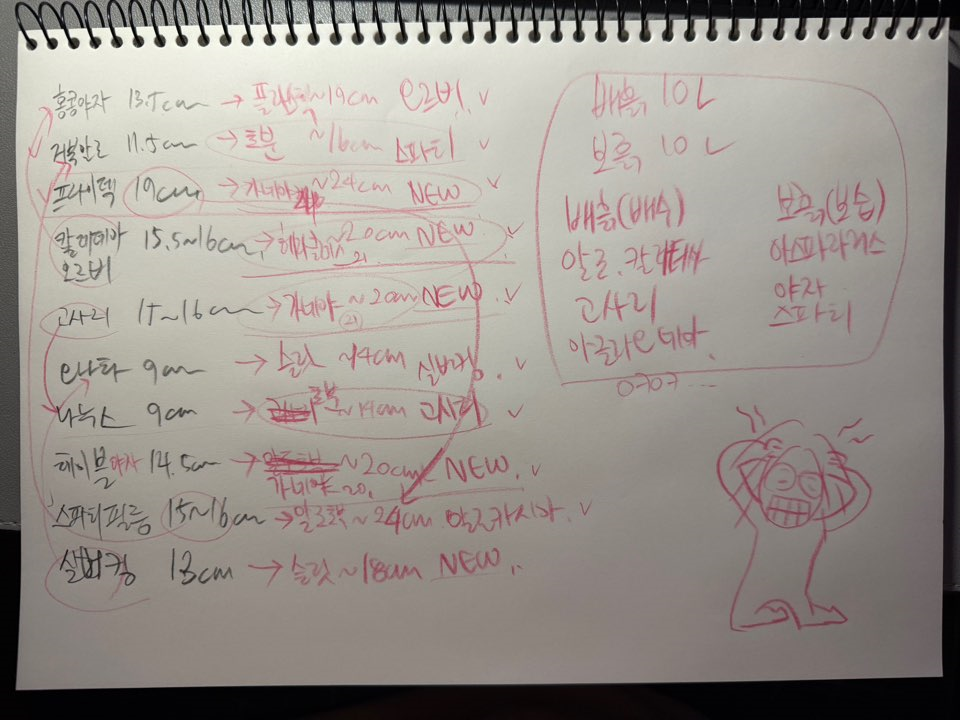 홍콩야자 13.5cm → 플라스틱 ~19cm 오르비. ✓
거북알로 11.5cm → 토분 ~16cm 스파티 ✓
프라이덱 19cm → 가네야 ~24cm NEW ✓
칼라데아 오르비 15.5~16cm → ~20cm NEW ✓
21
고사리 15~16cm → 가네야 ~20cm NEW. ✓
(21)
9cm → 슬릿 ~14cm 실버킹. ✓
나눅스 9cm → 토분 ~14cm 고사리 ✓
테이블야자 14.5cm → ~20cm NEW. ✓
가네야 20.
스파티필름 15~16cm → ~24cm 알로카시아. ✓
실버킹 13cm → 슬릿 ~18cm NEW.
배흙 10L
보흙 10L
배흙(배수)
보흙(보습)
알로.
아스파라거스
고사리
야자
스파티
아글라오네마.